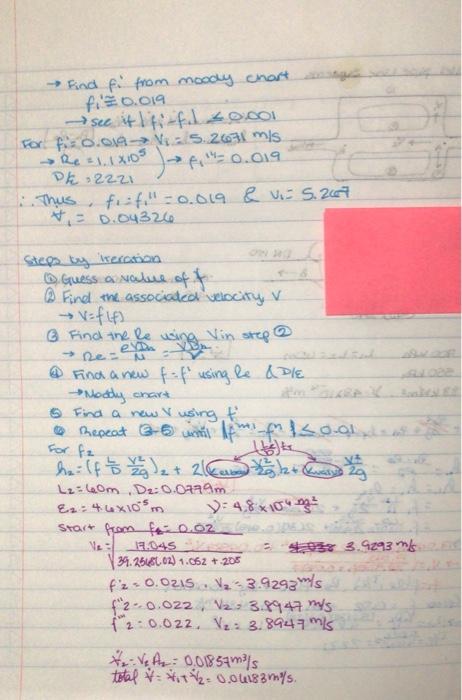 → Find f₁' from moody chart
f₁' ≅ 0.019
→ see if |f₁' - f₁| ≤ 0.001
For f₁' = 0.019 → V₁ = 5.2671 m/s
→ Re = 1.1 x 10⁵ → f₁'' = 0.019
D/ε = 2221
∴ Thus, f₁ = f₁'' = 0.019 & V₁ = 5.267
V̇₁ = 0.04326
Steps by iteration
① Guess a value of f
② Find the associated velocity, V
→ V = f(f)
③ Find the Re using V in step ②
→ Re = ρVDₕ/μ = VDₕ/ν
④ Find a new f = f' using Re & D/E
→ Moody chart
⑤ Find a new V using f'
⑥ Repeat ③-⑤ until |fⁿ⁺¹ - fⁿ| ≤ 0.01
For f₂
h₂ = (f L/D V²/2g)₂ + 2(Kelbow V²/2g)₂ + Kvalve V²/2g
L₂ = 40m, D₂ = 0.0779m
ε₂ = 4.6 x 10⁻⁵ m ν = 4.8 x 10⁻⁶ m²/s
Start from f₂ = 0.02
V₂ = √17.045 = 3.9293 m/s
f'₂ = 0.0215, V₂ = 3.9293 m/s
f''₂ = 0.022, V₂ = 3.8947 m/s
f'''₂ = 0.022, V₂ = 3.8947 m/s
V̇₂ = V₂A₂ = 0.01857 m³/s
total V̇ = V̇₁ + V̇₂ = 0.06183 m³/s.